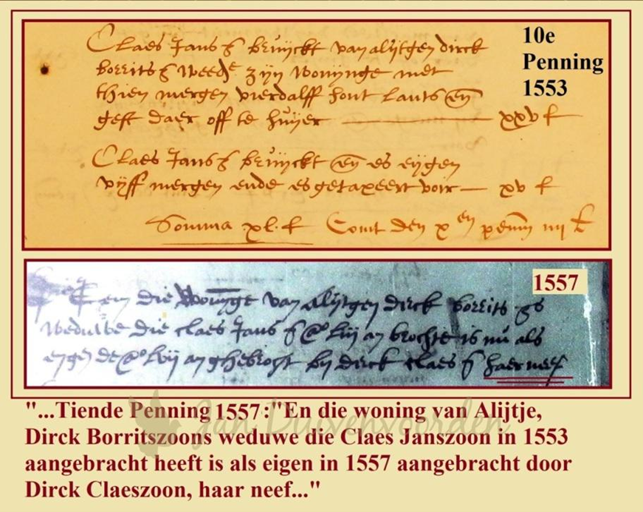 Claes Jans ß bruyckt van alijtgen dirck
borrits ß weede zijn wonijnge met
thien mergen vierdalff hont lants en
geft daer off te huijer xxv ł
10e
Penning
1553
Claes Jans ß bruyckt en es eijgen
vijff mergen ende es getaxeert voir xv ł
Somma xl. ł Comt den x en penni iiij ł
1557
die Wonynge van alijtgen dirck borrits
weduwe die claes Jans ß brochte is nu als
eygen anghebrocht bij dirck claes ß haer neef
"...Tiende Penning 1557:"En die woning van Alijtje,
Dirck Borritszoons weduwe die Claes Janszoon in 1553
aangebracht heeft is als eigen in 1557 aangebracht door
Dirck Claeszoon, haar neef..."
Jan Duivenvoorden